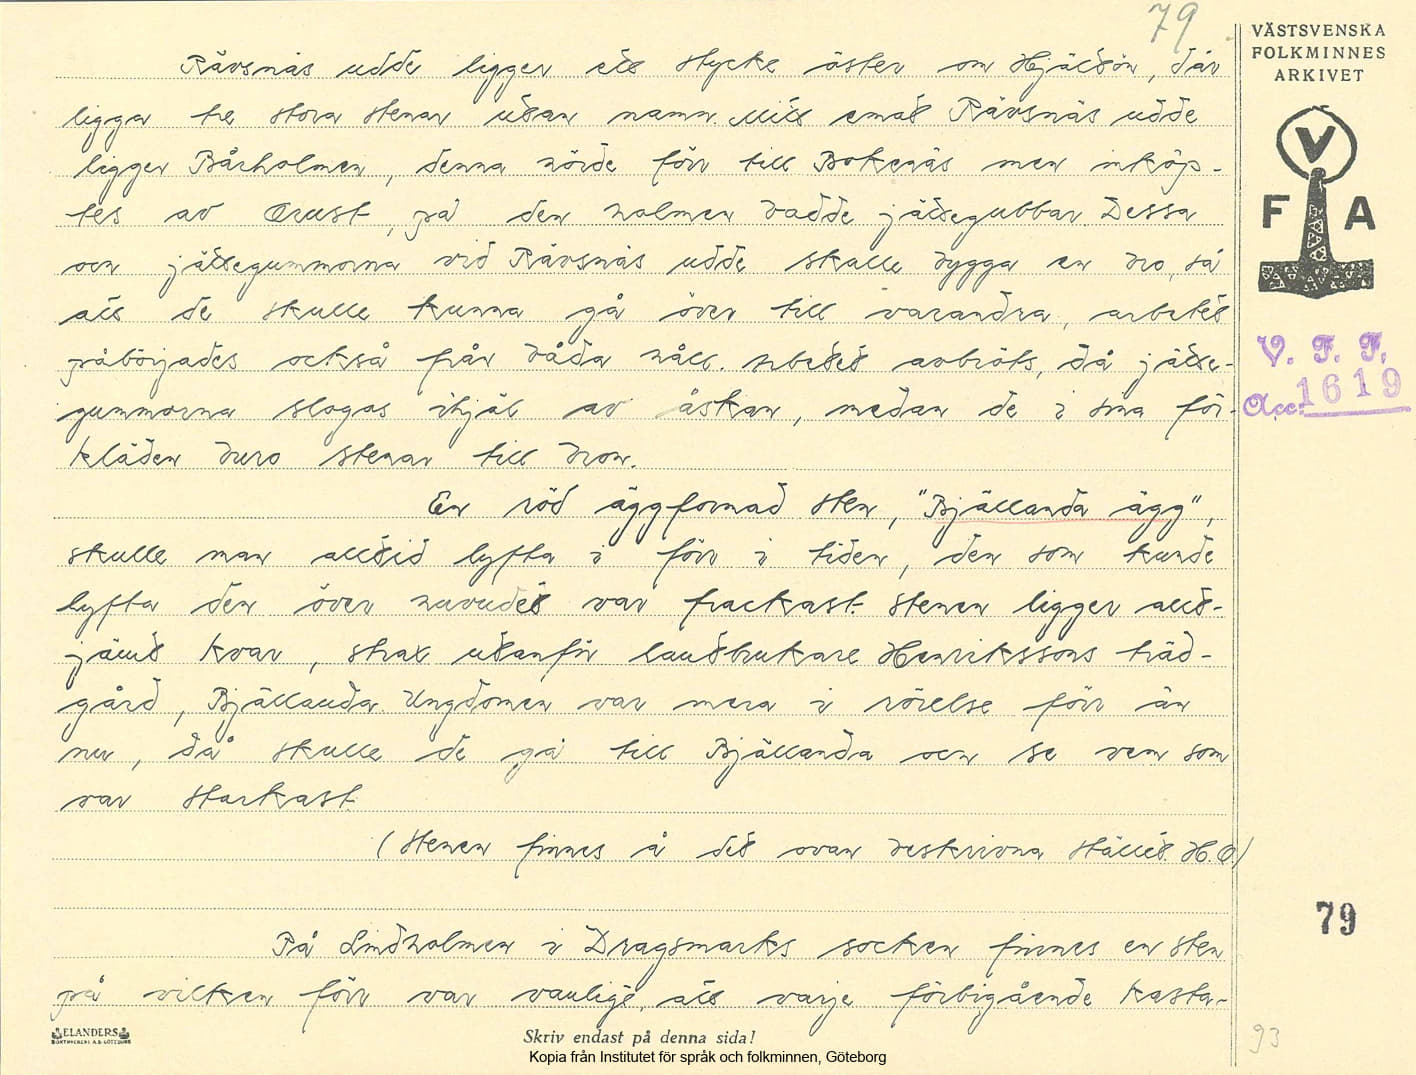 79
VÄSTSVENSKA
FOLKMINNES
ARKIVET
V
F A
V. F. F.
Acc: 1619
Rävsnäs udde ligger ett stycke öster om Hjältön, där
ligga tre stora stenar utan namn. Mitt emot Rävsnäs udde
ligger Bårholmen, denna hörde förr till Bokenäs men inköp-
tes av Orust, på den holmen bodde jättegubbar. Dessa
och jättegummorna vid Rävsnäs udde skulle bygga en bro, så
att de skulle kunna gå över till varandra, arbetet
påbörjades också från båda håll. Arbetet avbröts, då jätte-
gummorna slogos ihjäl av åskan, medan de i sina för-
kläden buro stenar till bron.
En röd äggformad sten, "Bjällanda ägg",
skulle man alltid lyfta i förr i tiden, den som kunde
lyfta den över huvudet var frackast. Stenen ligger allt-
jämt kvar, strax utanför lantbrukare Henrikssons träd-
gård, Bjällanda. Ungdomen var mera i rörelse förr än
nu, då skulle de gå till Bjällanda och se vem som
var starkast.
(Stenen finnes å det ovan beskrivna stället. H.O.)
På Lindholmen i Dragsmarks socken finnes en sten
på vilken förr var vanligt, att varje förbigående kasta-
79
93
ELANDERS
BOKTRYCKERI A.B. GÖTEBORG
Skriv endast på denna sida!
Kopia från Institutet för språk och folkminnen, Göteborg